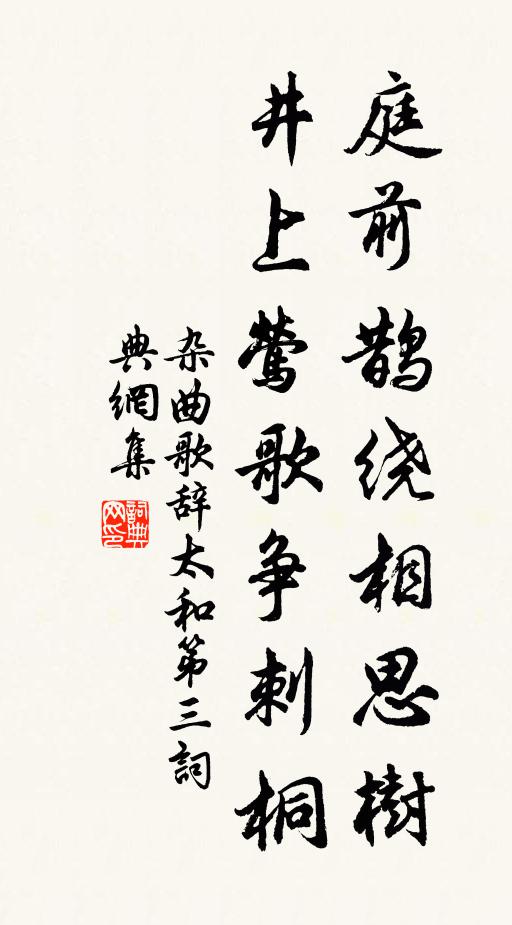 庭前鹊绕相思樹
井上莺歌争刺桐
杂曲歌辞太和第三詞
典網集
詞典网印